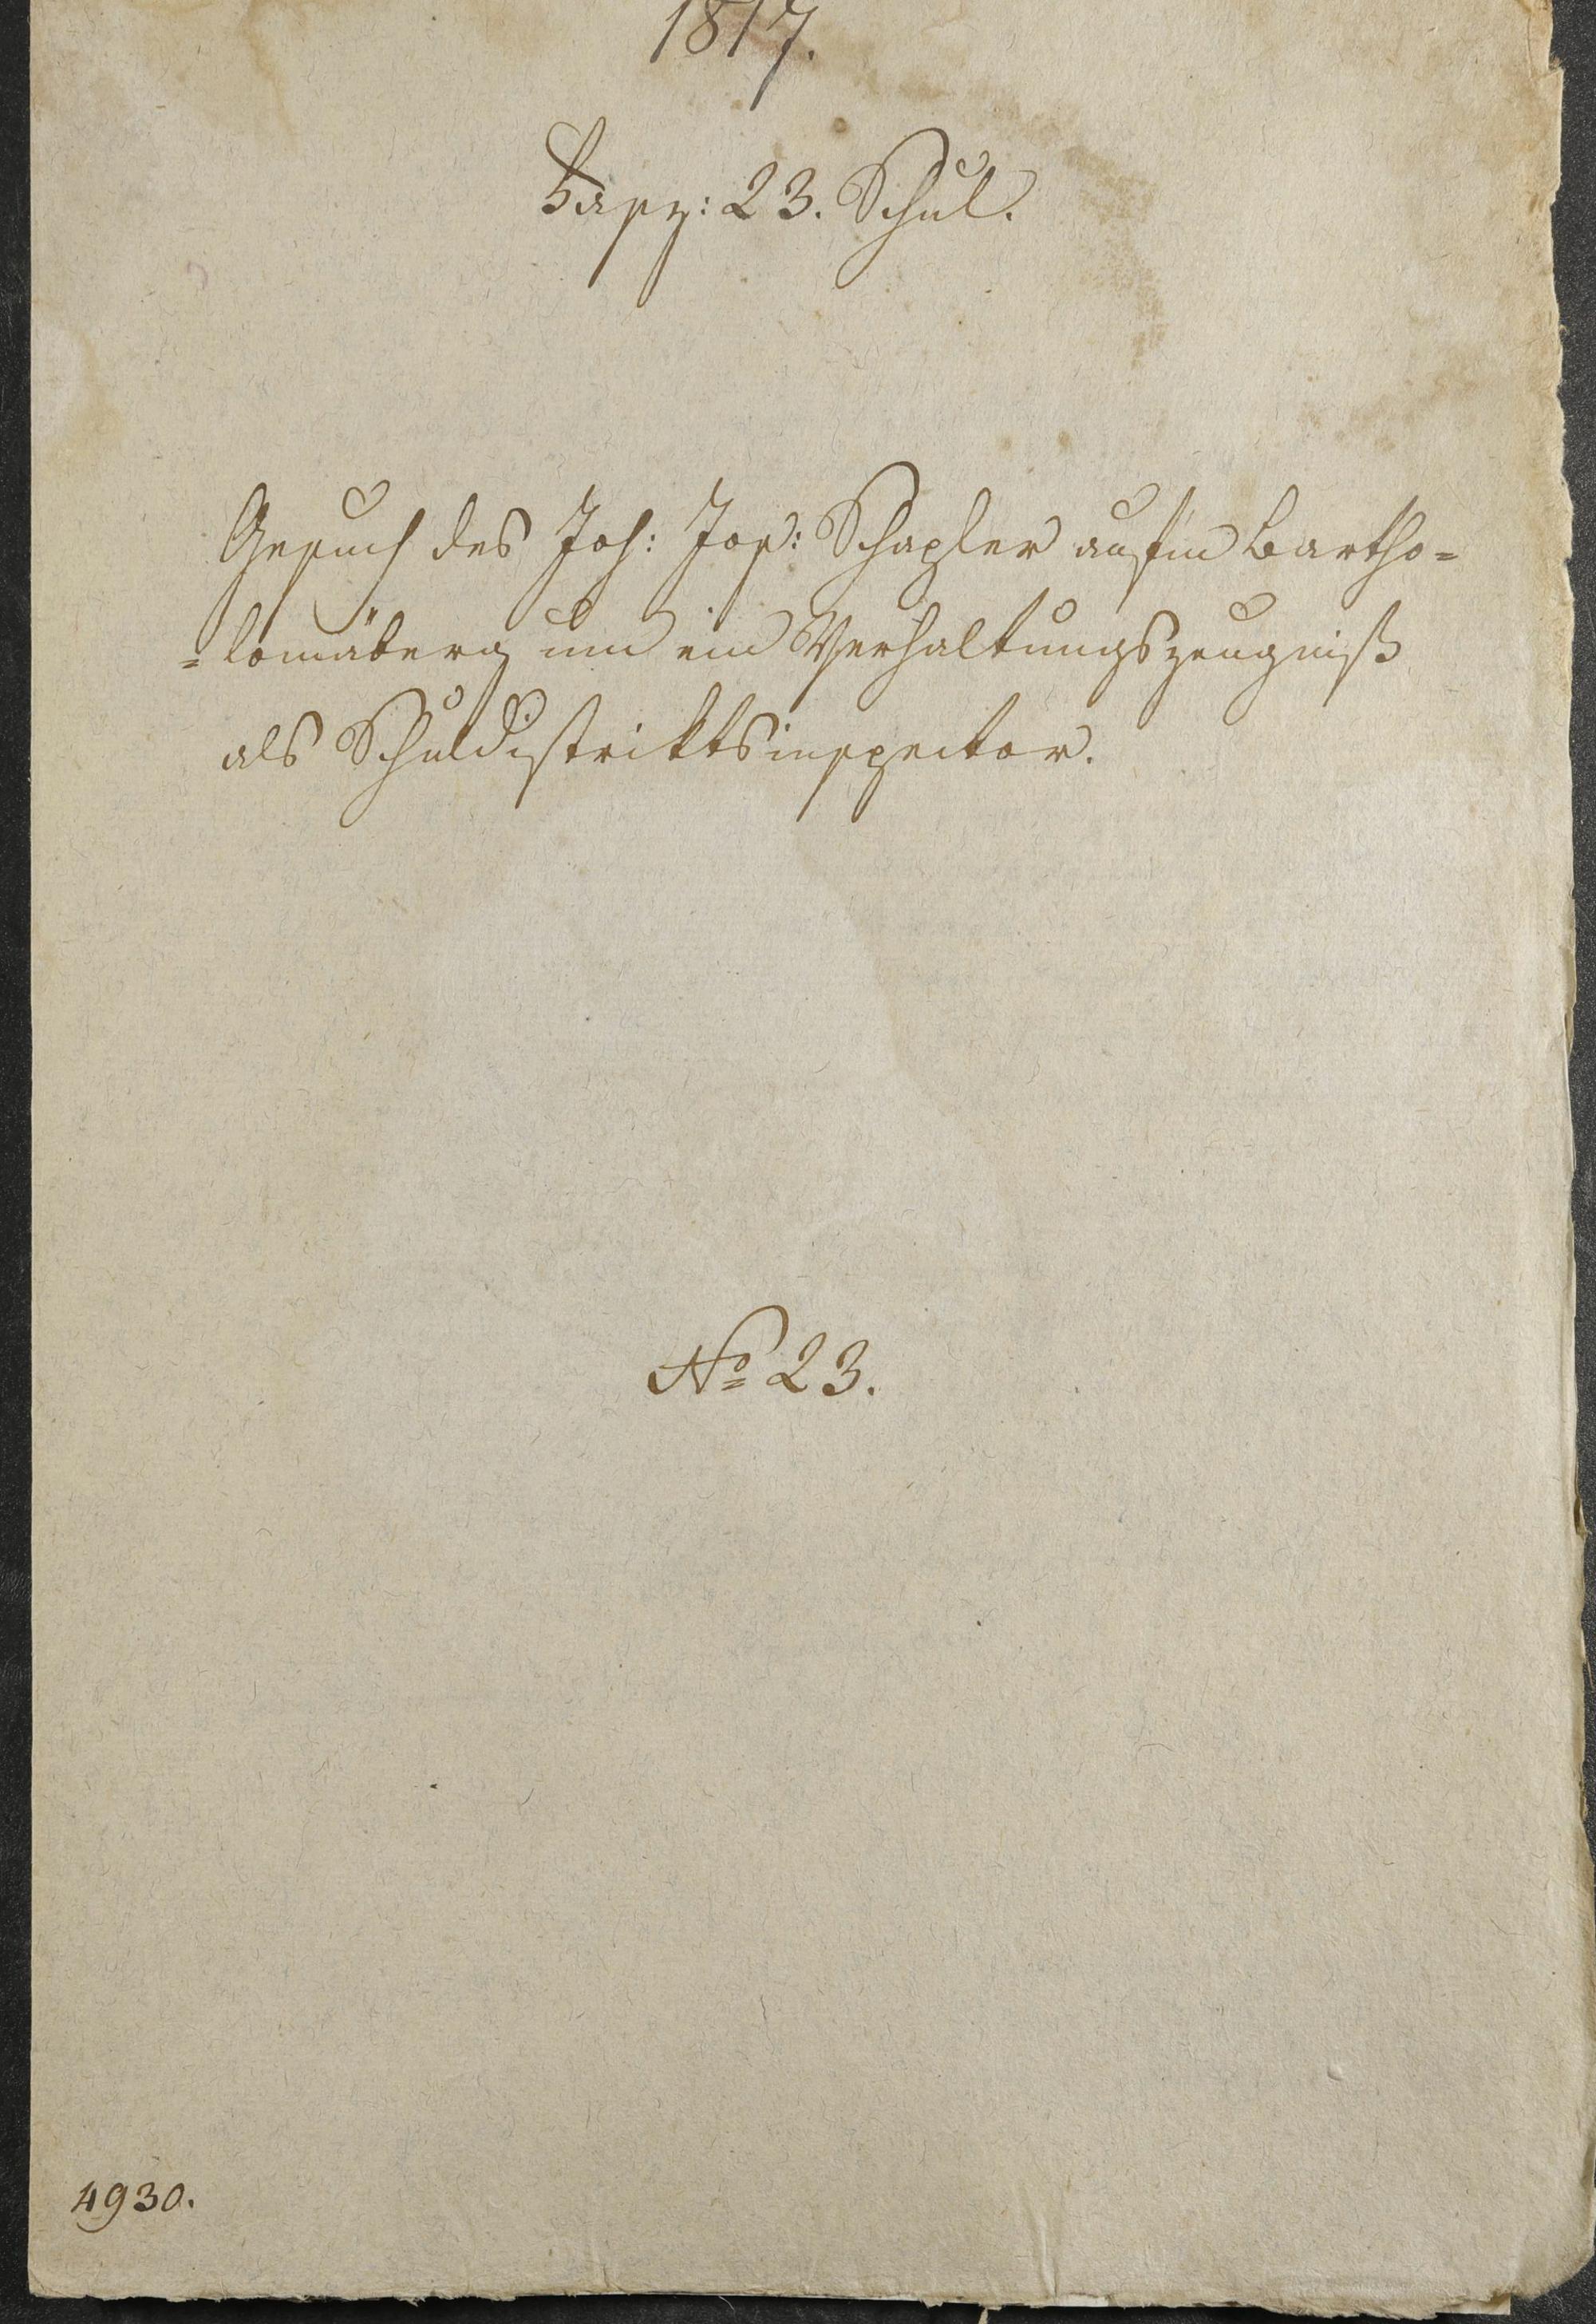 1817.
Fasz: 23. Schul.
Gesuch des Joh: Jos: Schapler aus Bartho=
=lomäberg um ein Verhaltungszeugniß
als Schuldistriktsinspector.
No 23.
4930.